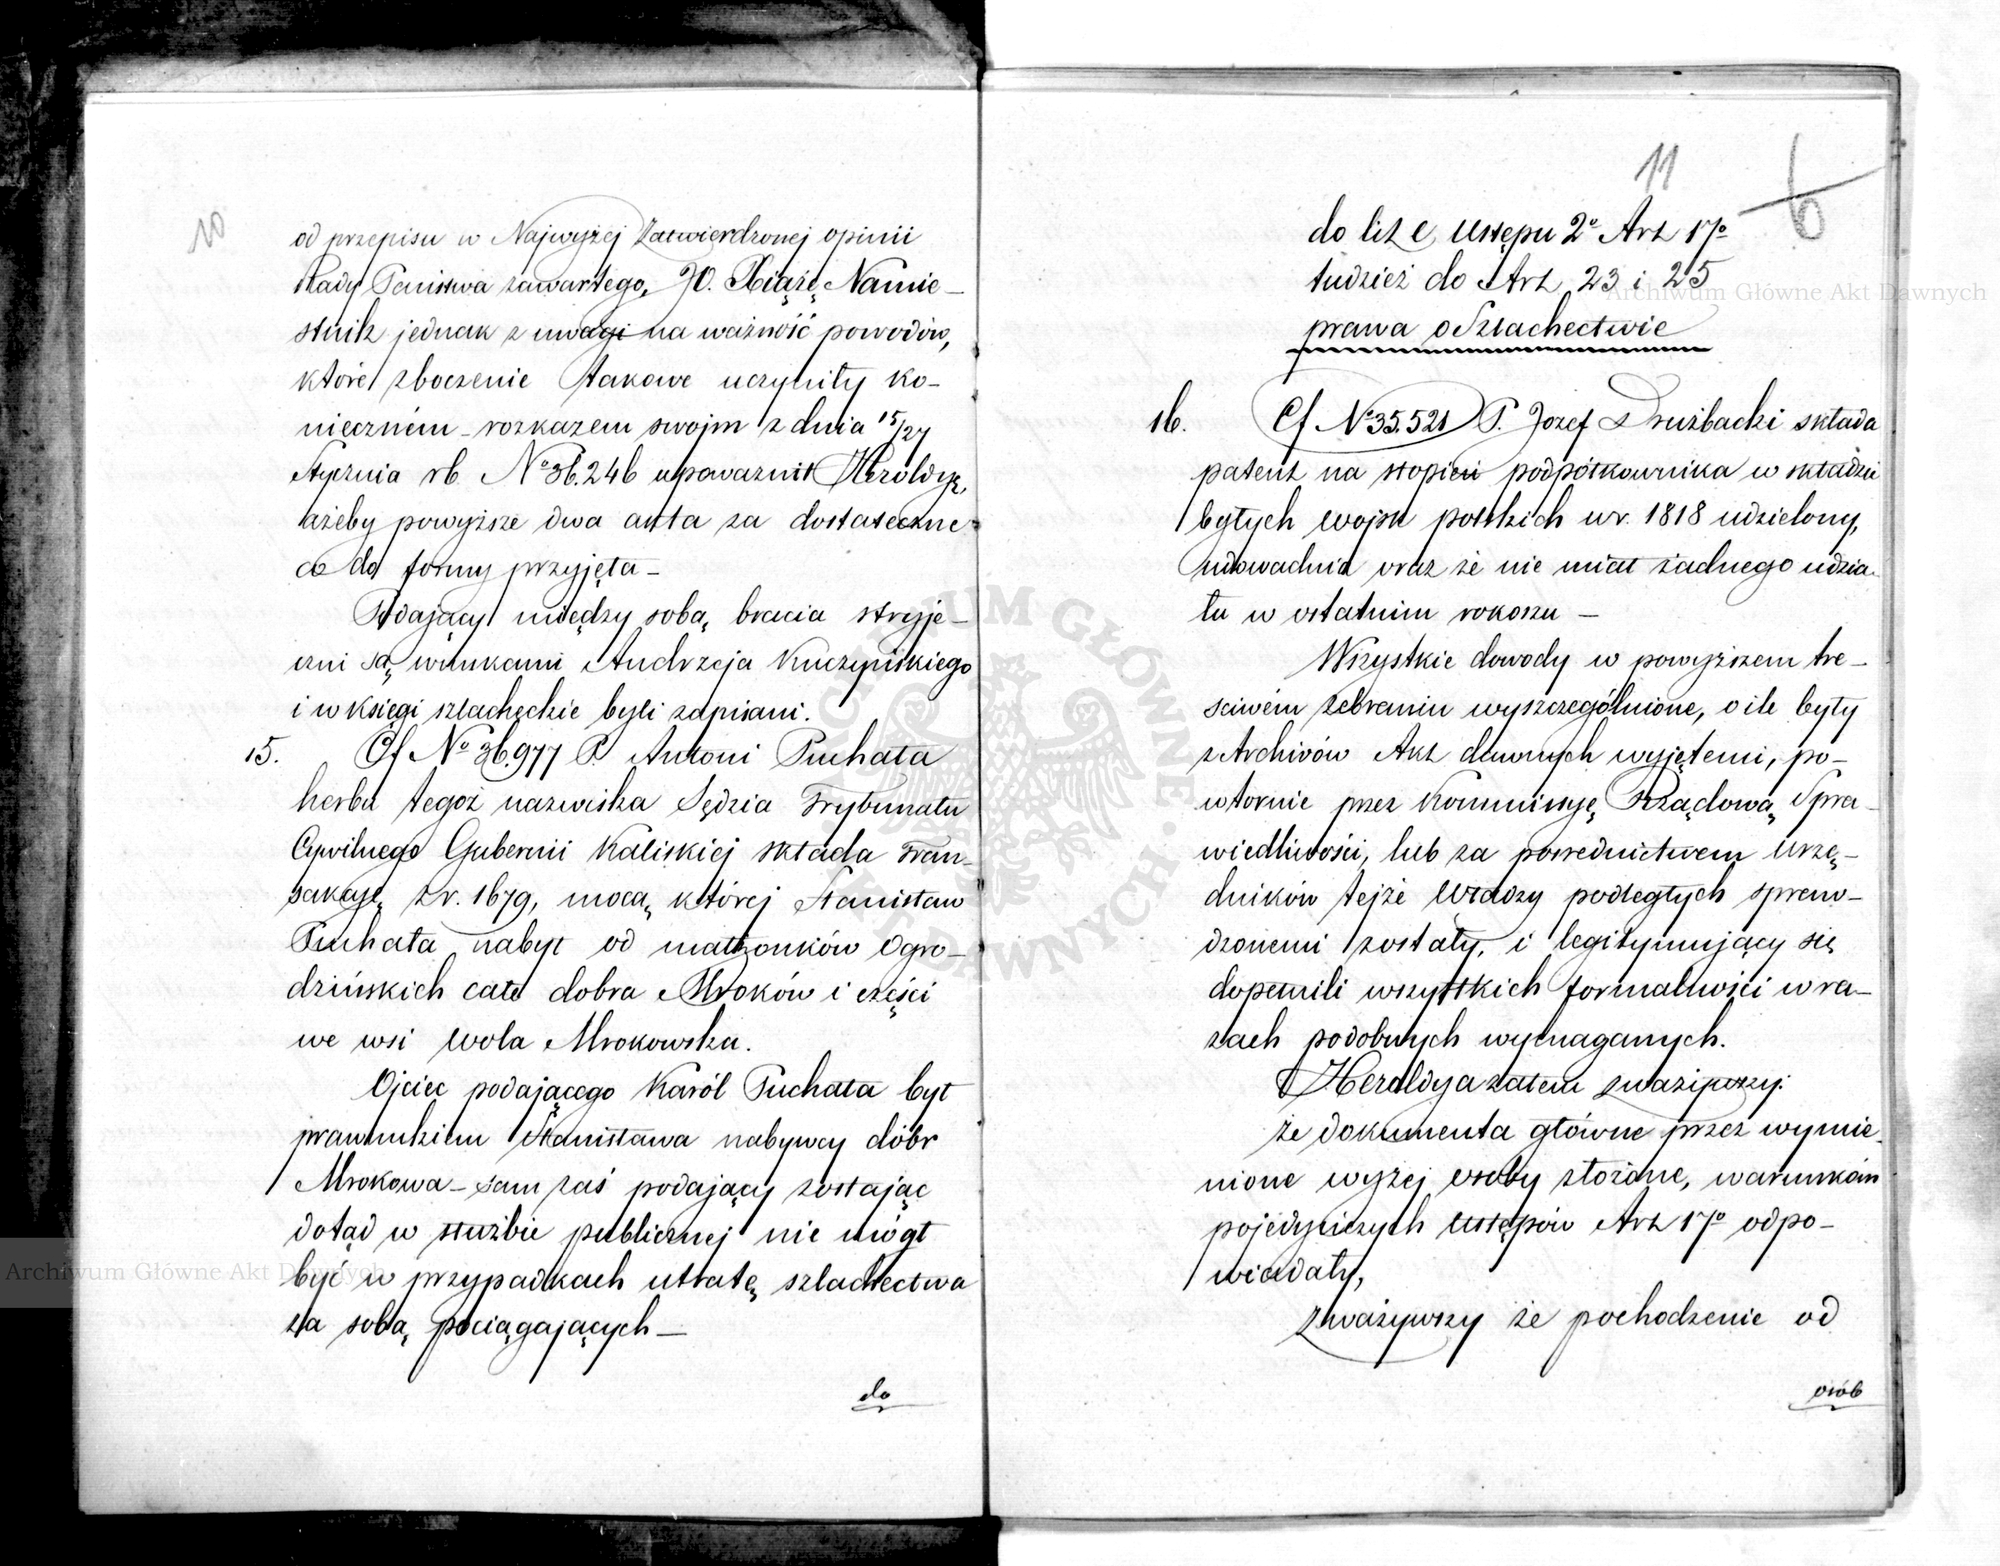 10
od przepisu w Najwyżej Zatwierdzonej opinii
Rady Państwa zawartego, JO. Xiążę Namie-
stnik jednak z uwagi na ważność powodów,
które zboczenie takowe uczyniły ko-
nieczném - rozkazem swojm z dnia 15/27
Stycznia rb. No 36.246 upoważnił Heroldyę,
ażeby powyższe dwa akta za dostateczne
co do formy przyjęła -
Podający między sobą bracia stryje-
czni są wnukami Andrzeja Kuczyńskiego
i w księgi szlacheckie byli zapisani.
15. Cf No 36.977 P. Antoni Puchała
herbu tegoż nazwiska Sędzia Trybunału
Cywilnego Gubernii Kaliskiej składa Tran-
sakcyę z r. 1679, mocą której Stanisław
Puchała nabył od małżonków Ogro-
dzińskich całe dobra Mroków i części
we wsi Wola Mrokowska.
Ojciec podającego Karól Puchała był
prawnukiem Stanisława nabywcy dóbr
Mrokowa - sam zaś podający zostając
dotąd w służbie publicznej nie mógł
być w przypadkach utratę szlachectwa
za sobą pociągających -
do
11
6
do lit e, Ustępu 2o Art 17o
tudzież do Art. 23 i 25
prawa o Szlachectwie
16. Cf No 35.521 P. Jozef Drużbacki składa
patent na stopień podpółkownika w składzie
byłych wojsk polskich w r. 1818 udzielony,
udowadnia oraz że nie miał żadnego udzia-
łu w ostatnim rokoszu -
Wszystkie dowody w powyższem tre-
sciwém zebraniu wyszczególnione, o ile były
z Archivów Akt dawnych wyjętemi, po-
wtornie przez Kommissyę Rządową Spra-
wiedliwości, lub za pośrednictwem Urzę-
dników tejże Władzy podległych spraw-
dzonemi zostały, i legitymujący się
dopełnili wszystkich formalności w ra-
zach podobnych wymaganych.
Heroldya zatem zważywszy:
że dokumenta główne przez wymie-
nione wyżej osoby złożone, warunkom
pojedyńczych Ustępów Art 17o odpo-
wiadały,
Zważywszy że pochodzenie od
osób
Archiwum Główne Akt Dawnych
Archiwum Główne Akt Dawnych
ARCHIWUM GŁÓWNE AKT DAWNYCH